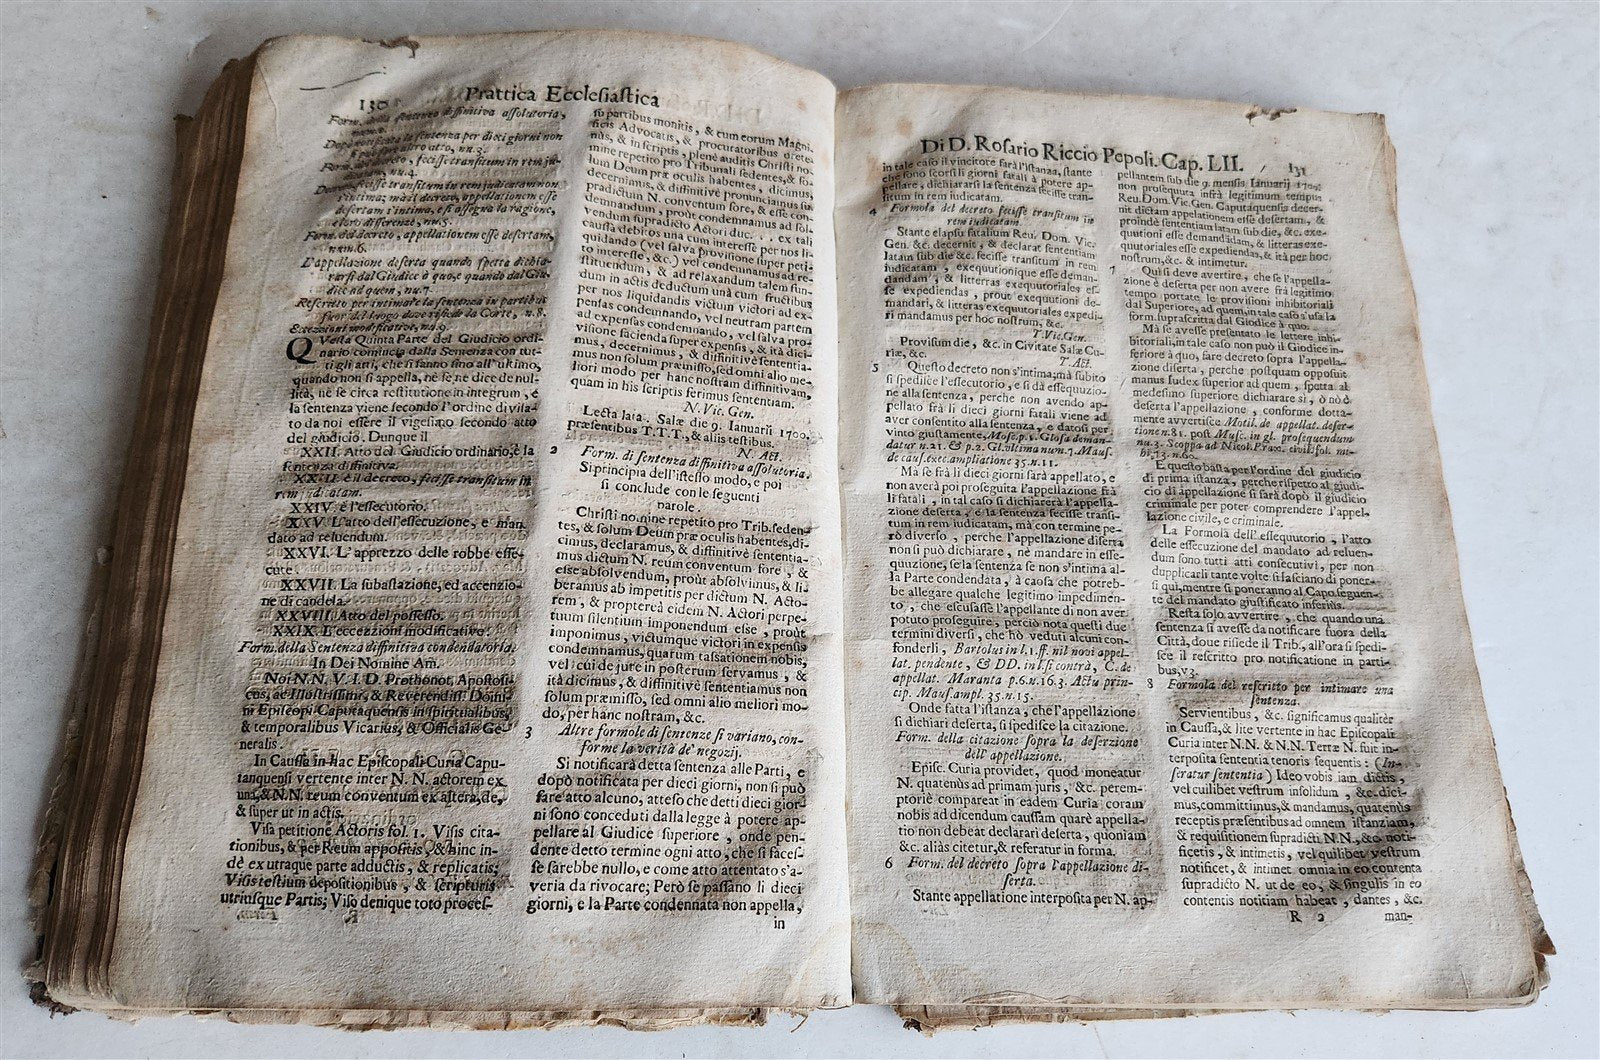 130 Prattica Ecclesiastica
Form. della sentenza diffinitiva assolutoria,
num.2.
Dopo notificata la sentenza per dieci giorni non
si può far altro atto, nu.3.
Form. del decreto, fecisse transitum in rem ju-
dicatam, nu.4.
Decreto, fecisse transitum in rem judicatam non
s'intima; mà il decreto, appellationem esse
desertam s'intima, e si assegna la ragione,
e loro differenze, nu.5.
Form. del decreto, appellationem esse desertam,
num.6.
L'appellazione deserta quando spetta dichia-
rarsi dal Giudice à quo, e quando dal Giu-
dice ad quem, nu.7.
Rescritto per intimare la sentenza in partibus
fuor del luogo dove risiede la Corte, n.8.
Eccezzioni modificative, nu.9.
QVesta Quinta Parte del Giudicio ordi-
nario comincia dalla Sentenza con tut-
ti gli atti, che si fanno sino all'ultimo,
quando non si appella, nè se ne dice de nul-
lità, nè se circa restitutione in integrum, e
la sentenza viene secondo l'ordine divisa-
to da noi essere il vigesimo secondo atto
del giudicio. Dunque il
XXII. Atto del Giudicio ordinario, è la
sentenza diffinitiva.
XXIII. è il decreto, fecisse transitum in
rem judicatam.
XXIV. è l'essecutorio.
XXV. L'atto dell'essecuzione, e man
dato ad reluendum.
XXVI. L'apprezzo delle robbe esse-
cute.
XXVII. La subastazione, ed accenzio-
ne di candela.
XXVIII. Atto del possesso.
XXIX. L'eccezzioni modificativo.
Form. della Sentenza diffinitiva condennatoria.
In Dei Nomine Am.
Noi N.N. V. I. D. Prothonot. Apostoli-
cus, ac Illustrissimi, & Reverendiss. Domi-
ni Episcopi Caputaquensis in spiritualibus,
& temporalibus Vicarius, & Officialis Ge-
neralis.
In Caussa in hac Episcopali Curia Capu-
tanquensi vertente inter N. N. actorem ex
una, & N.N. reum conventum ex altera, de,
& super ut in actis.
Visa petitione Actoris fol. 1. Visis cita-
tionibus, & per Reum appositis, & hinc in-
dè ex utraque parte adductis, & replicatis;
Visis testium depositionibus, & scripturis
utriusque Partis; Viso denique toto proces-
so partibus monitis, & cum eorum Magni-
ficis Advocatis, & procuratoribus oretè-
nùs, & in scriptis, plenè auditis Christi no-
mine repetito pro Tribunali sedentes, & so-
lum Deum præ oculis habentes, dicimus,
decernimus, & diffinitivè pronunciamus su-
pradictum N. conventum fore, & esse con-
demnandum, proùt condemnamus ad sol-
vendum supradicto Actori duc. . . ex tali
caussa debitos una cum interesse per nos li-
quidando (vel salva provisione super peti-
to interesse, &c.) vel condemnamus ad re-
stituendum, & ad relaxandum talem fun-
dum in actis deductum unà cum fructibus
per nos liquidandis victum victori ad ex-
pensas condemnando, vel neutram partem
ad expensas condemnando, vel salva pro-
visione facienda super expensis, & ità dici-
mus, decernimus, & diffinitivè sententia-
mus non solum præmisso, sed omni alio me-
liori modo per hanc nostram diffinitivam,
quam in his scriptis ferimus sententiam.
N. Vic. Gen.
Lecta lata. Salæ die 9. Ianuarii 1700.
præsentibus T.T.T., & aliis testibus.
N. Act.
2 Form. di sentenza diffinitiva assolutoria.
Si principia dell'istesso modo, e poi
si conclude con le seguenti
parole.
Christi nomine repetito pro Trib. seden-
tes, & solum Deum præ oculis habentes, di-
cimus, declaramus, & diffinitivè sententia-
mus dictum N. reum conventum fore, &
esse absolvendum, proùt absolvimus, & li-
beramus ab impetitis per dictum N. Acto-
rem, & proptereà eidem N. Actori perpe-
tuum silentium imponendum esse, proùt
imponimus, victumque victori in expensis
condemnamus, quarum taxationem nobis,
vel cui de jure in posterum servamus, &
ità dicimus, & diffinitivè sententiamus non
solum præmisso, sed omni alio meliori mo-
do, per hanc nostram, &c.
3 Altre formole di sentenze si variano, con-
forme la verità de' negozij.
Si notificarà detta sentenza alle Parti, e
dopò notificata per dieci giorni, non si può
fare atto alcuno, atteso che detti dieci gior-
ni sono conceduti dalla legge à potere ap-
pellare al Giudice superiore, onde pen-
dente detto termine ogni atto, che si faces-
se sarebbe nullo, e come atto attentato s'a-
veria da rivocare; Però se passano li dieci
giorni, e la Parte condennata non appella,
in
Di D. Rosario Riccio Pepoli. Cap. LII. 131
in tale caso il vincitore farà l'istanza, stante
che sono scorsi li giorni fatali à potere ap-
pellare, dichiararsi la sentenza fecisse tran-
situm in rem judicatam.
4 Formola del decreto fecisse transitum in
rem iudicatam.
Stante elapsu fatalium Reu. Dom. Vic.
Gen. &c. decernit, & declarat sententiam
latam sub die &c. fecisse transitum in rem
iudicatam, exequutionique esse deman-
dandam, & litterras exequutoriales es-
se expediendas, prout exequutioni de-
mandari, & litteras exequutoriales expedi-
ri mandamus per hoc nostrum, &c.
T. Vic. Gen.
Provisum die, &c. in Civitate Salæ Cu-
riæ, &c.
T. Act.
5 Questo decreto non s'intima; mà subito
si spedisce l'essecutorio, e si dà essequuzio-
ne alla sentenza, perche non avendo ap-
pellato frà li dieci giorni fatali viene ad
aver consentito alla sentenza, e datosi per
vinto giustamente, Mosc. p. 1. Glosa deman-
datur n.21. & p.2. Gl. ultima num.7. Maus.
de caus. exec. ampliatione 35. n.11.
Ma se frà li dieci giorni sarà appellato, e
non averà poi proseguita l'appellazione frà
li fatali, in tal caso si dichiarerà l'appella-
zione deserta, e la sentenza fecisse transi-
tum in rem iudicatam, mà con termine pe-
rò diverso, perche l'appellazione diserta
non si può dichiarare, nè mandare in esse-
quuzione, se la sentenza se non s'intima al-
la Parte condendata, à caosa che potreb-
be allegare qualche legitimo impedimen-
to, che escusasse l'appellante di non aver
potuto proseguire, perciò nota questi due
termini diversi, che hò veduti alcuni con-
fonderli, Bartolus in l. 1. ff. nil novi appel-
lat. pendente, & DD. in l. si contrà, C. de
appellat. Maranta p.6. n.16.3. Actu prin-
cip. Maus. ampl. 35. n.15.
Onde fatta l'istanza, che l'appellazione
si dichiari deserta, si spedisce la citazione.
Form. della citazione sopra la deserzione
dell' appellazione.
Episc. Curia providet, quod moneatur
N. quatenùs ad primam juris, &c. perem-
ptoriè compareat in eadem Curia coram
nobis ad dicendum caussam quarè appella-
tio non debeat declarari deserta, quoniam
&c. aliàs citetur, & referatur in forma.
6 Form. del decreto sopra l'appellazione di-
serta.
Stante appellatione interposita per N. ap-
pellantem sub die 9. mensis Ianuarij 1700.
non prosequuta infrà legitimum tempus
Reu. Dom. Vic. Gen. Caputaquensis decer-
nit dictam appellationem esse desertam, &
proindè sententiam latam sub die, &c. exe-
quutioni esse demandadam, & litteras exe-
quutoriales esse expediendas, & ità per hoc
nostrum, &c. & intimetur.
7 Qui si deve avertire, che se l'appella-
zione è deserta per non avere frà legitimo
tempo portate le provisioni inhibitoriali
dal Superiore, ad quem, in tale caso s'usa la
form. suprascritta dal Giudice à quo.
Ma se avesse presentato le lettere inhi-
bitoriali, in tale caso non può il Giudice in-
feriore à quo, fare decreto sopra l'appella-
zione diserta, perche postquam opposuit
manus Iudex superior ad quem, spetta al
medesimo superiore dichiarare si, ò nò è
deserta l'appellazione, conforme dotta-
mente avvertisce Motil. de appellat. deser-
tione n.81. post Musc. in gl. prosequendum
nu.3. Scoppa ad Nicol. Prax. civil. fol. mi-
hi, 13. n.60.
E questo basta per l'ordine del giudicio
di prima istanza, perche rispetto al giudi-
cio di appellazione si farà dopò il giudicio
criminale per poter comprendere l'appel-
lazione civile, e criminale.
La Formola dell'essequutorio, l'atto
delle essecuzione del mandato ad reluen-
dum sono tutti atti consecutivi, per non
dupplicarli tante volte si lasciano di poner-
si qui, mentre si poneranno al Capo seguen-
te del mandato giustificato inferiùs.
Resta solo avvertire, che quando una
sentenza si avesse da notificare fuora della
Città, doue risiede il Trib., all'ora si spedi-
sce il rescritto pro notificatione in parti-
bus, v3.
8 Formola del rescritto per intimare una
sentenza.
Servientibus, &c. significamus qualitèr
in Caussa, & lite vertente in hac Episcopali
Curia inter N.N. & N.N. Terræ N. fuit in-
terposita sententia tenoris sequentis: (In-
seratur sententia) Ideo vobis iam dictis,
vel cuilibet vestrum insolidum, &c. dici-
mus, committimus, & mandamus, quatenùs
receptis præsentibus ad omnem istanziam,
& requisitionem supradicti N.N., &c. noti-
ficetis, & intimetis, vel quilibet vestrum
notificet, & intimet omnia in eo contenta
supradicto N. ut de eo, & singulis in eo
contentis notitiam habeat, dantes, &c.
R 2 man-